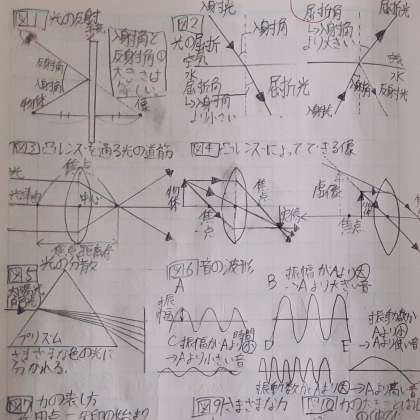 図1 光の反射
入射角と
反射角の
大きさは
等しい。
反射角
入射角
物体
像
図2
光の屈折
入射光
入射角
空気
水
屈折角
→入射角
より小さい
屈折光
屈折角
→入射角
より大きい
屈折光
空気
水
入射光
反射光
図3 凸レンズを通る光の道筋
焦点
光
光軸
中心
焦点距離
図4 凸レンズによってできる像
物体
焦点
焦点
実像
虚像
図5
光の分散
プリズム
さまざまな色の光に
分かれる。
図6 音の波形
A
振幅
時間
B 振幅がAより大
→Aより大きい音
C 振幅がAより小
→Aより小さい音
D
E
振動数が
Aより小
→Aより低い音
振動数がAより大
→Aより高い音
図7 力の表し方
図9 さまざまな力
図10